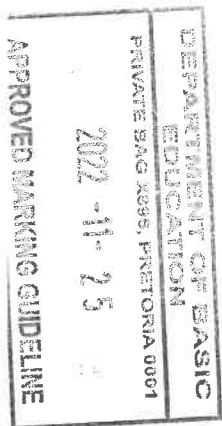 DEPARTMENT OF BASIC
EDUCATION
PRIVATE BAG X895, PRETORIA 0001
2022 -11- 25
APPROVED MARKING GUIDELINE